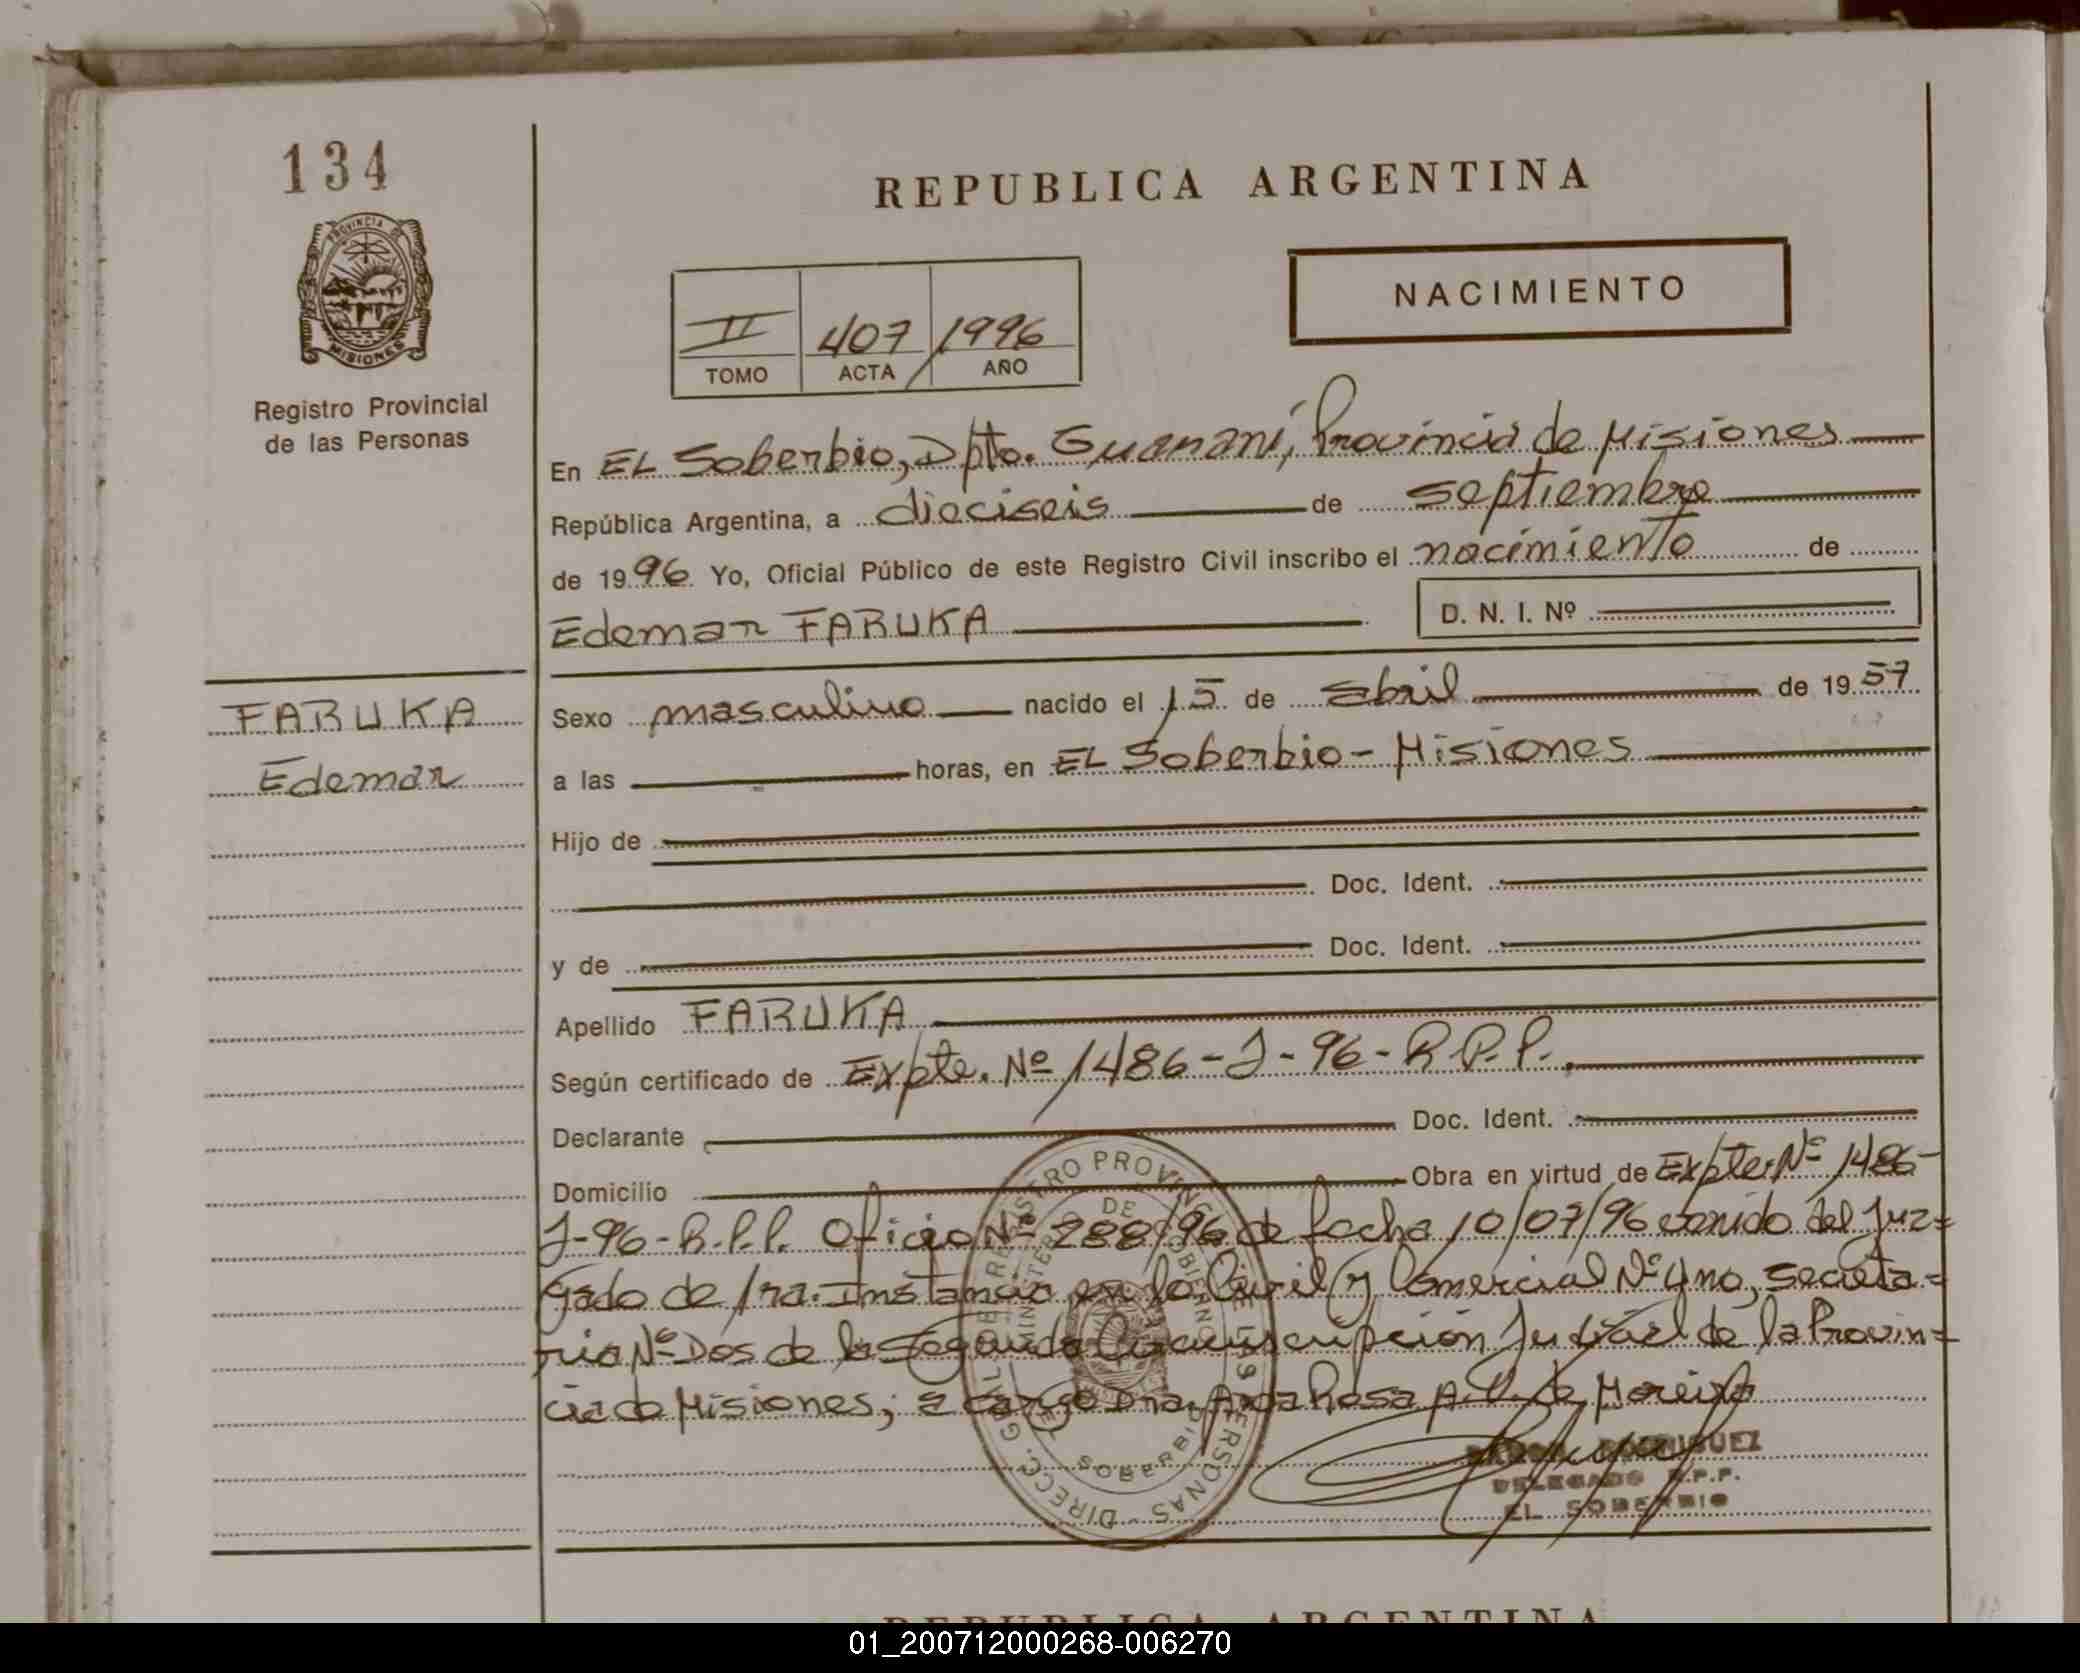 134
REPUBLICA ARGENTINA
PROVINCIA DE
MISIONES
Registro Provincial
de las Personas
NACIMIENTO
II 407/1996
TOMO ACTA AÑO
En EL Soberbio, Dpto. Guaraní, Provincia de Misiones
República Argentina, a dieciseis de septiembre
de 1996 Yo, Oficial Público de este Registro Civil inscribo el nacimiento de
Edemar FARUKA D. N. I. Nº
FARUKA
Edemar
Sexo masculino nacido el 15 de abril de 1957
a las horas, en EL Soberbio - Misiones
Hijo de
Doc. Ident.
y de Doc. Ident.
Apellido FARUKA
Según certificado de Expte. Nº 1486-J-96-R.P.P.
Declarante Doc. Ident.
Domicilio Obra en virtud de Expte. Nº 1486-
J-96-R.P.P. Oficio Nº 288/96 de fecha 10/07/96 venido del Juz=
gado de 1ra. Instancia en lo Civil y Comercial Nº Uno, Secreta=
ria Nº Dos de la Segunda Circunscripción Judicial de la Provin=
cia de Misiones; a cargo Dra. Rosa de Moreira
RODRIGUEZ
DELEGADO R.P.P.
EL SOBERBIO
REPUBLICA ARGENTINA
01_200712000268-006270